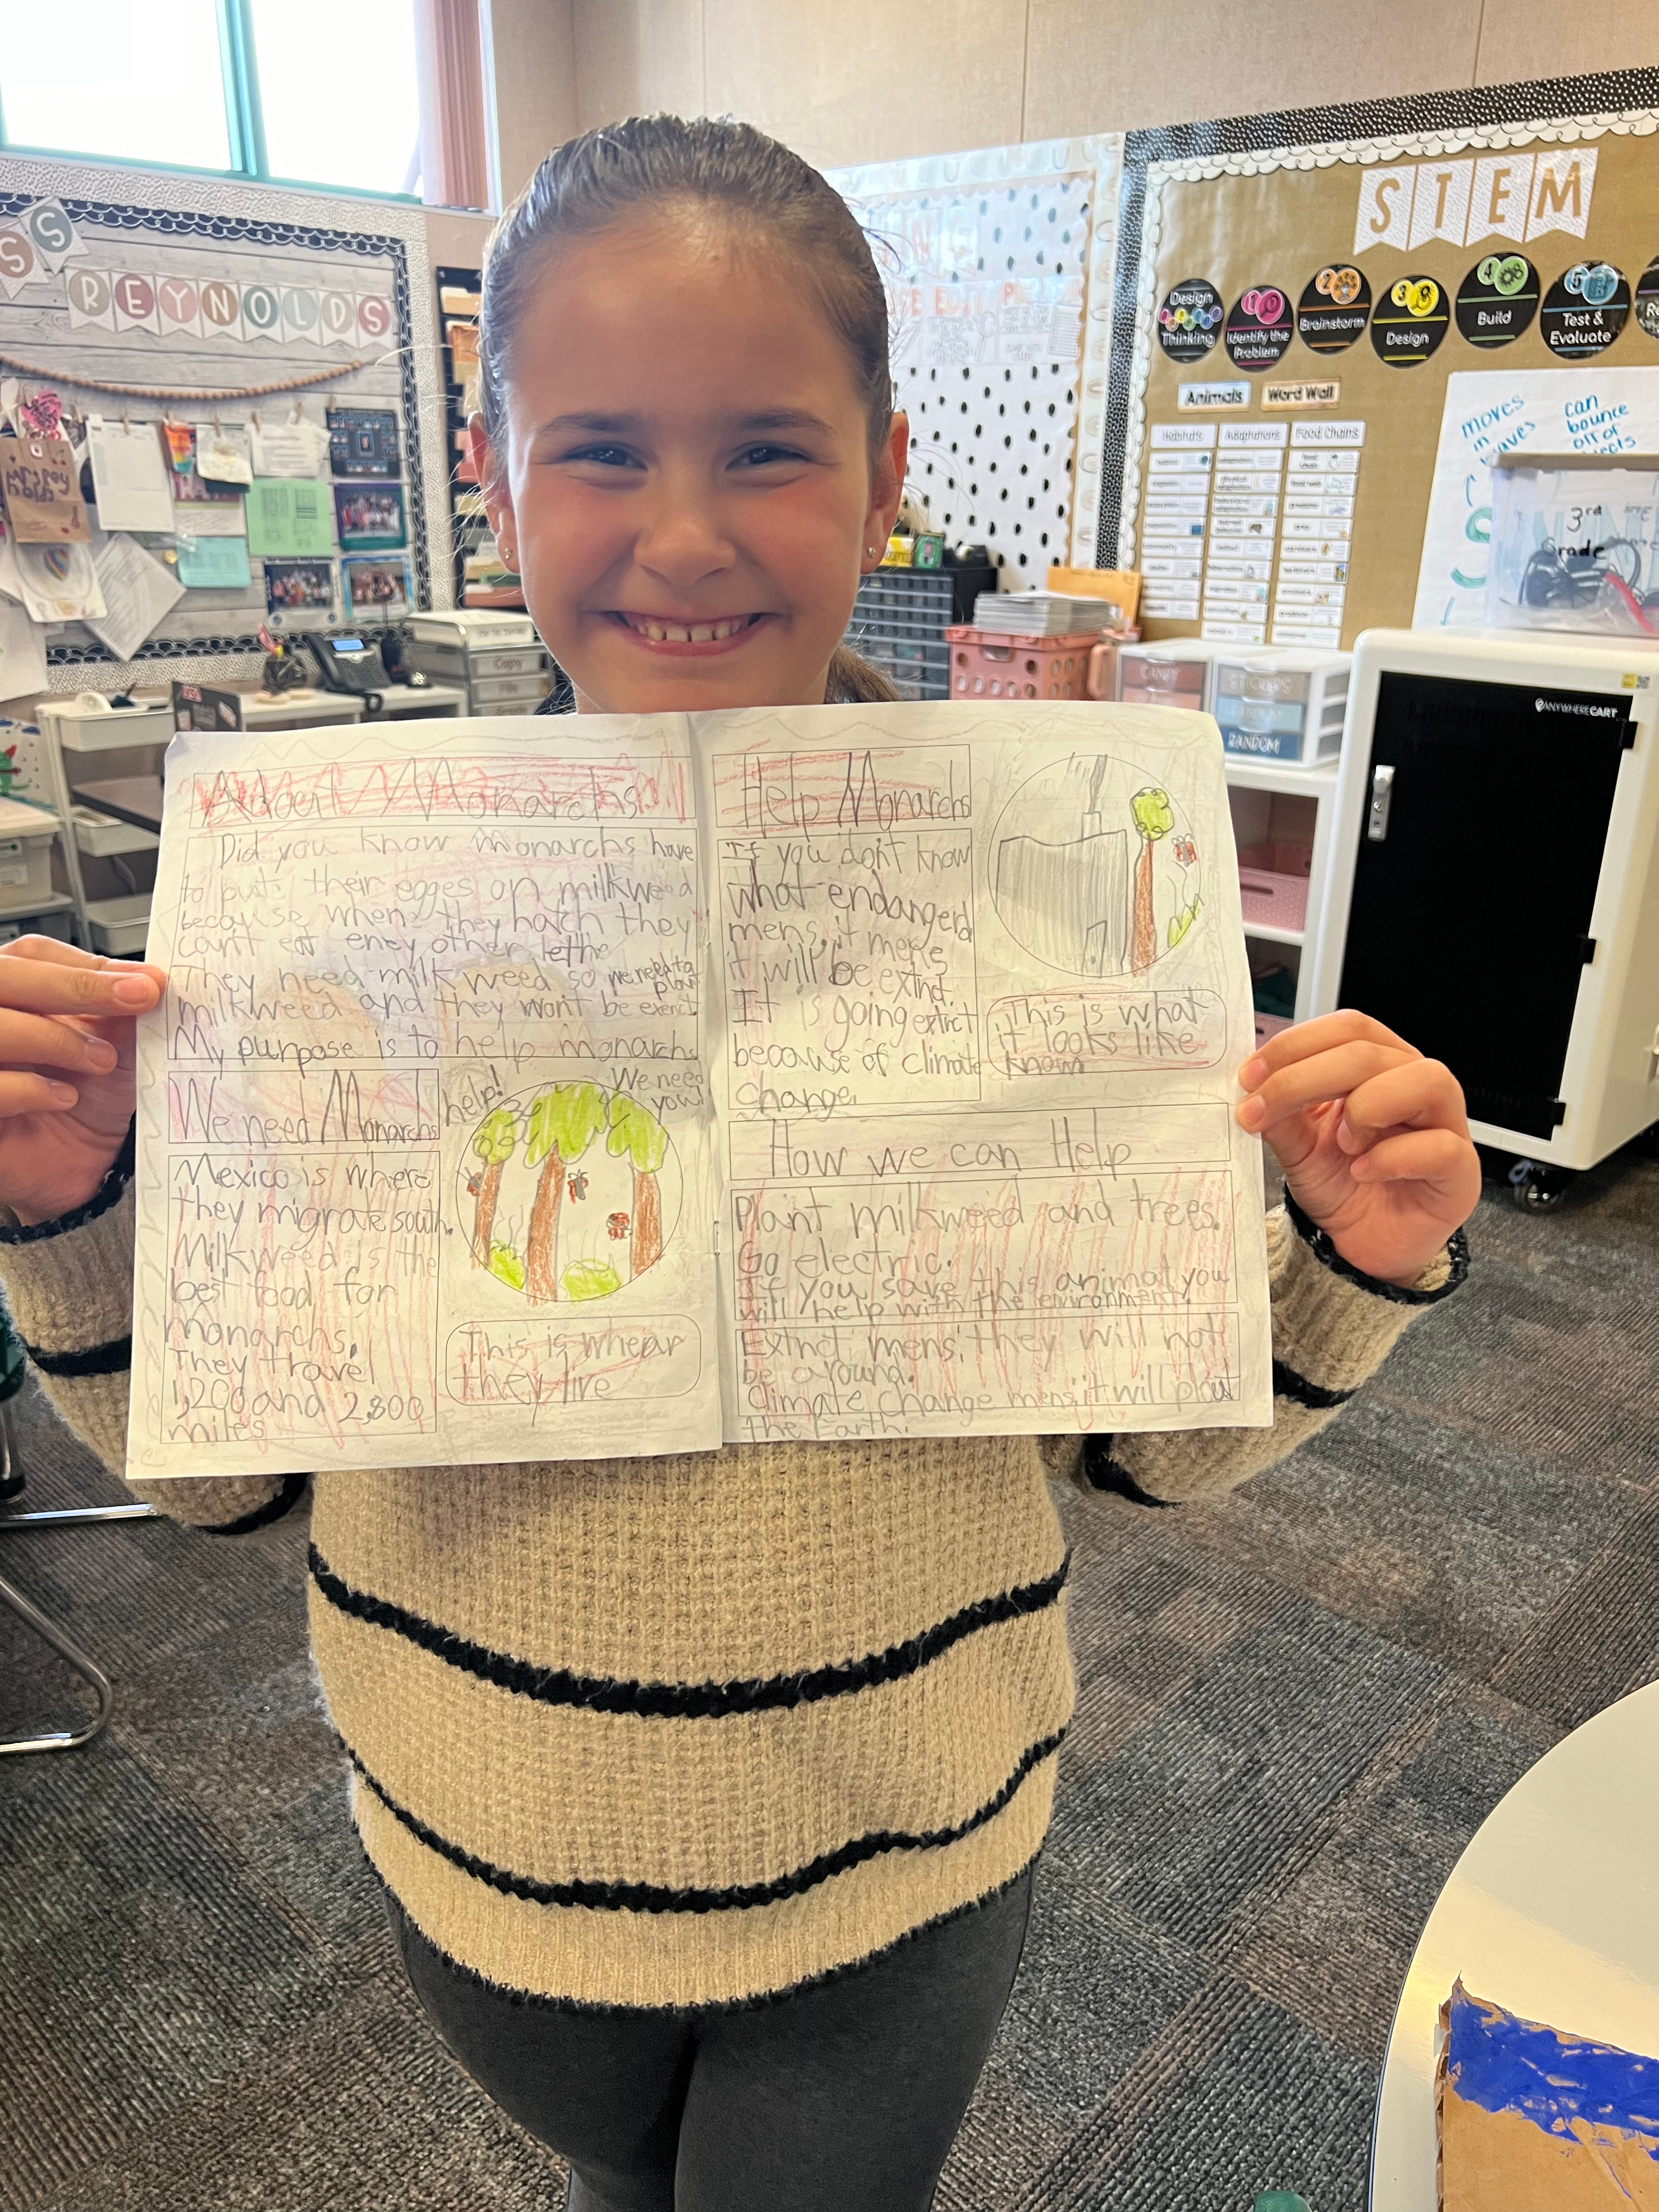 REYNOLDS
STEM
Design
Thinking
1
Identify the
Problem
2
Brainstorm
3
Design
4
Build
5
Test &
Evaluate
Animals
Word Wall
Habitats
Adaptations
Food Chains
moves
in
waves
can
bounce
off of
3rd
Grade
ANYWHERECART
Copy
CANDY
STICKERS
RANDOM
About Monarchs
Did you know Monarchs have
to put their egges on milkweed
because when they hatch they
can't eat eney other
They need milkweed so we need to
plant
milkweed and they wont be
My purpose is to help monarchs
We need Monarchs
help!
We need
you!
Mexico is where
they migrate south.
Milkweed is the
best food for
monarchs.
They travel
1,200 and 2,800
miles
This is whear
they live
Help Monarchs
If you don't know
what endangerd
mens, it mens
it will be extinct.
It is going extinct
because of climate
change.
This is what
it looks like
know
How we can Help
Plant milkweed and trees.
Go electric.
If you save this animal you
will help with the environment.
Extinct mens, they will not
be around.
Climate change mens, it will
the Earth.